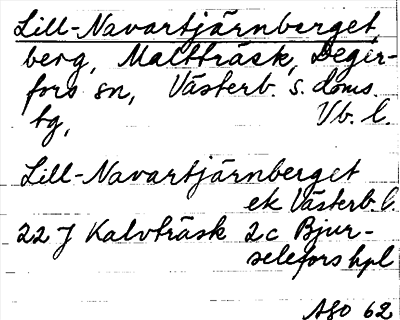 Lill-Navartjärnberget,
berg, Maltträsk, Deger-
fors sn, Västerb. s. doms.
tg, Vb. l.
Lill-Navartjärnberget
ek Västerb. l.
22 J Kalvträsk 2c Bjur-
selefors hpl
ASO 62